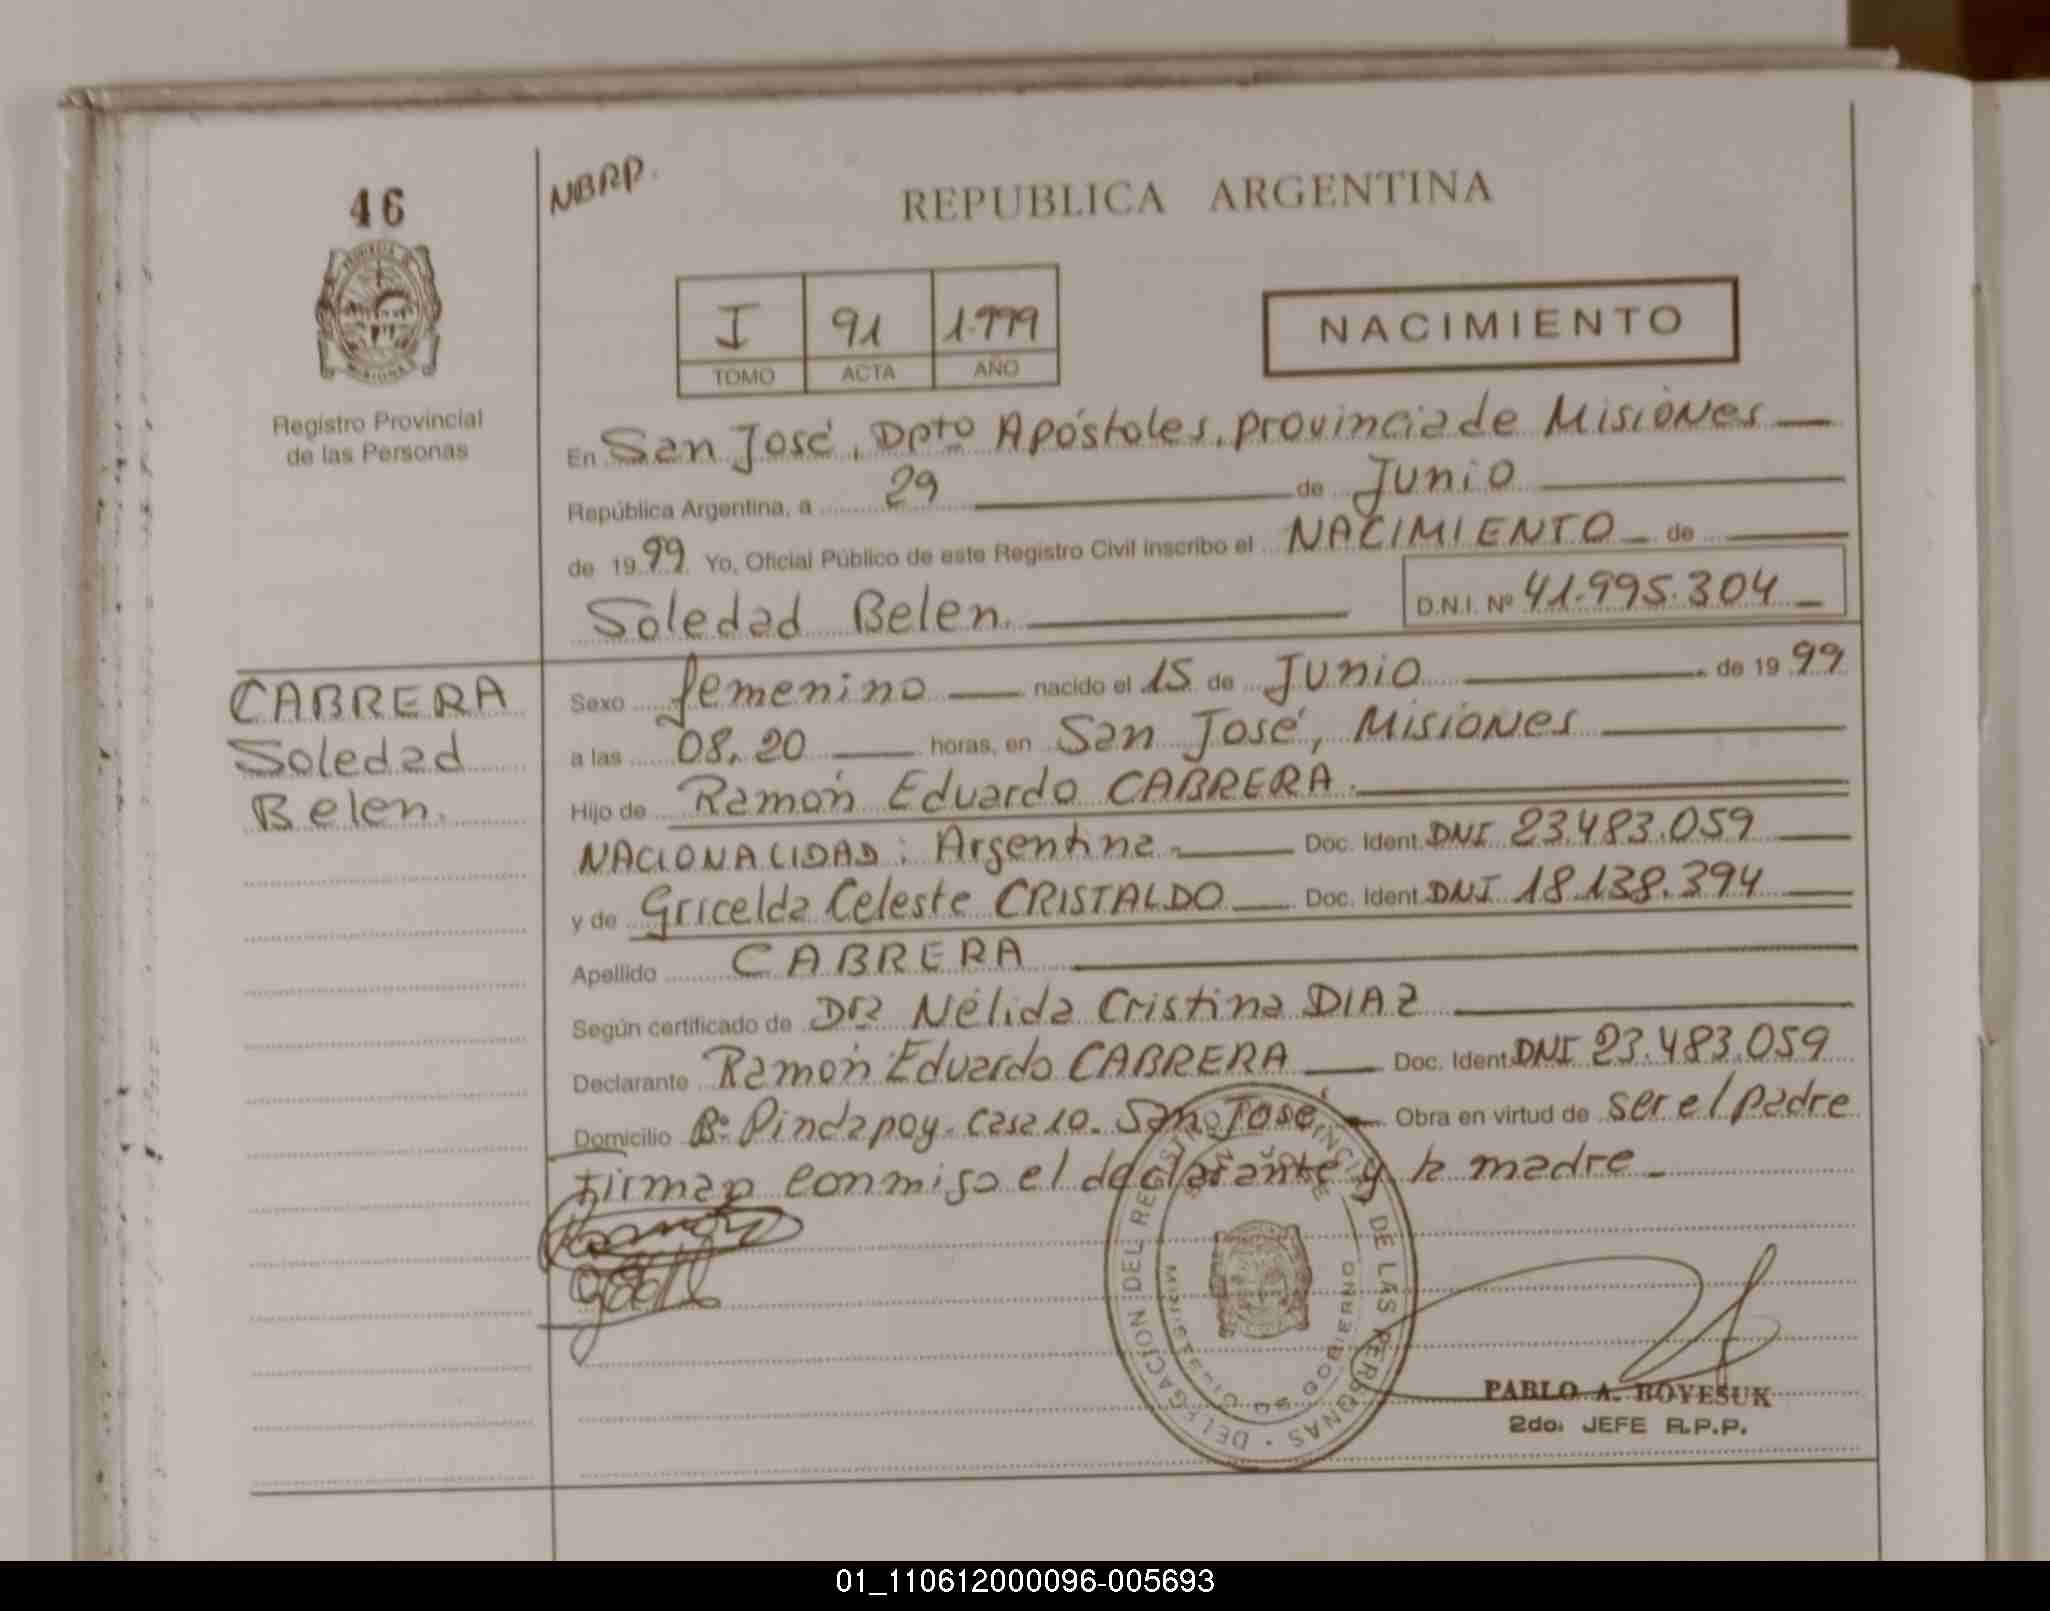 46
NBRP.
REPUBLICA ARGENTINA
I 91 1.999
TOMO ACTA AÑO
NACIMIENTO
Registro Provincial
de las Personas
En San José, Dpto Apóstoles, provincia de Misiones
República Argentina, a 29 de Junio
de 1999 Yo, Oficial Público de este Registro Civil inscribo el NACIMIENTO de
Soledad Belen. D.N.I. Nº 41.995.304
CABRERA
Soledad
Belen.
Sexo femenino nacido el 15 de Junio de 1999
a las 08.20 horas, en San José, Misiones
Hijo de Ramón Eduardo CABRERA.
NACIONALIDAD: Argentina Doc. Ident. DNI 23.483.059
y de Gricelda Celeste CRISTALDO Doc. Ident. DNI 18.138.394
Apellido CABRERA
Según certificado de Dra Nélida Cristina DIAZ
Declarante Ramón Eduardo CABRERA Doc. Ident. DNI 23.483.059
Domicilio Bº Pindapoy. Casa 10. San José Obra en virtud de ser el padre
Firman conmigo el declarante y la madre
DELEGACION DEL REGISTRO PROVINCIAL DE LAS PERSONAS
SAN JOSE
MINISTERIO DE GOBIERNO
PABLO A. BOYESUK
2do. JEFE R.P.P.
01_110612000096-005693